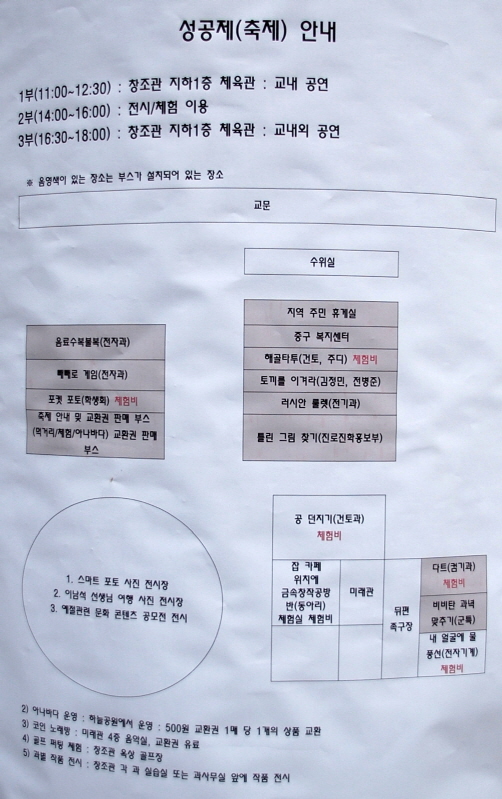 성공제(축제) 안내
1부(11:00~12:30) : 창조관 지하1층 체육관 : 교내 공연
2부(14:00~16:00) : 전시/체험 이용
3부(16:30~18:00) : 창조관 지하1층 체육관 : 교내외 공연
※ 음영색이 있는 장소는 부스가 설치되어 있는 장소
교문
수위실
음료수복불복(전자과)
빼빼로 게임(전자과)
포켓 포토(학생회) 체험비
축제 안내 및 교환권 판매 부스
(먹거리/체험/아나바다) 교환권 판매
부스
지역 주민 휴게실
중구 복지센터
해골타투(건토, 주디) 체험비
토끼를 이겨라(김정민, 전병준)
러시안 룰렛(전기과)
틀린 그림 찾기(진로진학홍보부)
1. 스마트 포토 사진 전시장
2. 이남석 선생님 여행 사진 전시장
3. 예절관련 문화 콘텐츠 공모전 전시
공 던지기(건토과)
체험비
잡 카페
위치에
금속창작공방
반(동아리)
체험실 체험비
미래관
뒤편
족구장
다트(컴기과)
체험비
비비탄 과녁
맞추기(군특)
내 얼굴에 물
풍선(전자기계)
체험비
2) 아나바다 운영 : 하늘공원에서 운영 : 500원 교환권 1매 당 1개의 상품 교환
3) 코인 노래방 : 미래관 4층 음악실, 교환권 유료
4) 골프 퍼팅 체험 : 창조관 옥상 골프장
5) 과별 작품 전시 : 창조관 각 과 실습실 또는 과사무실 앞에 작품 전시